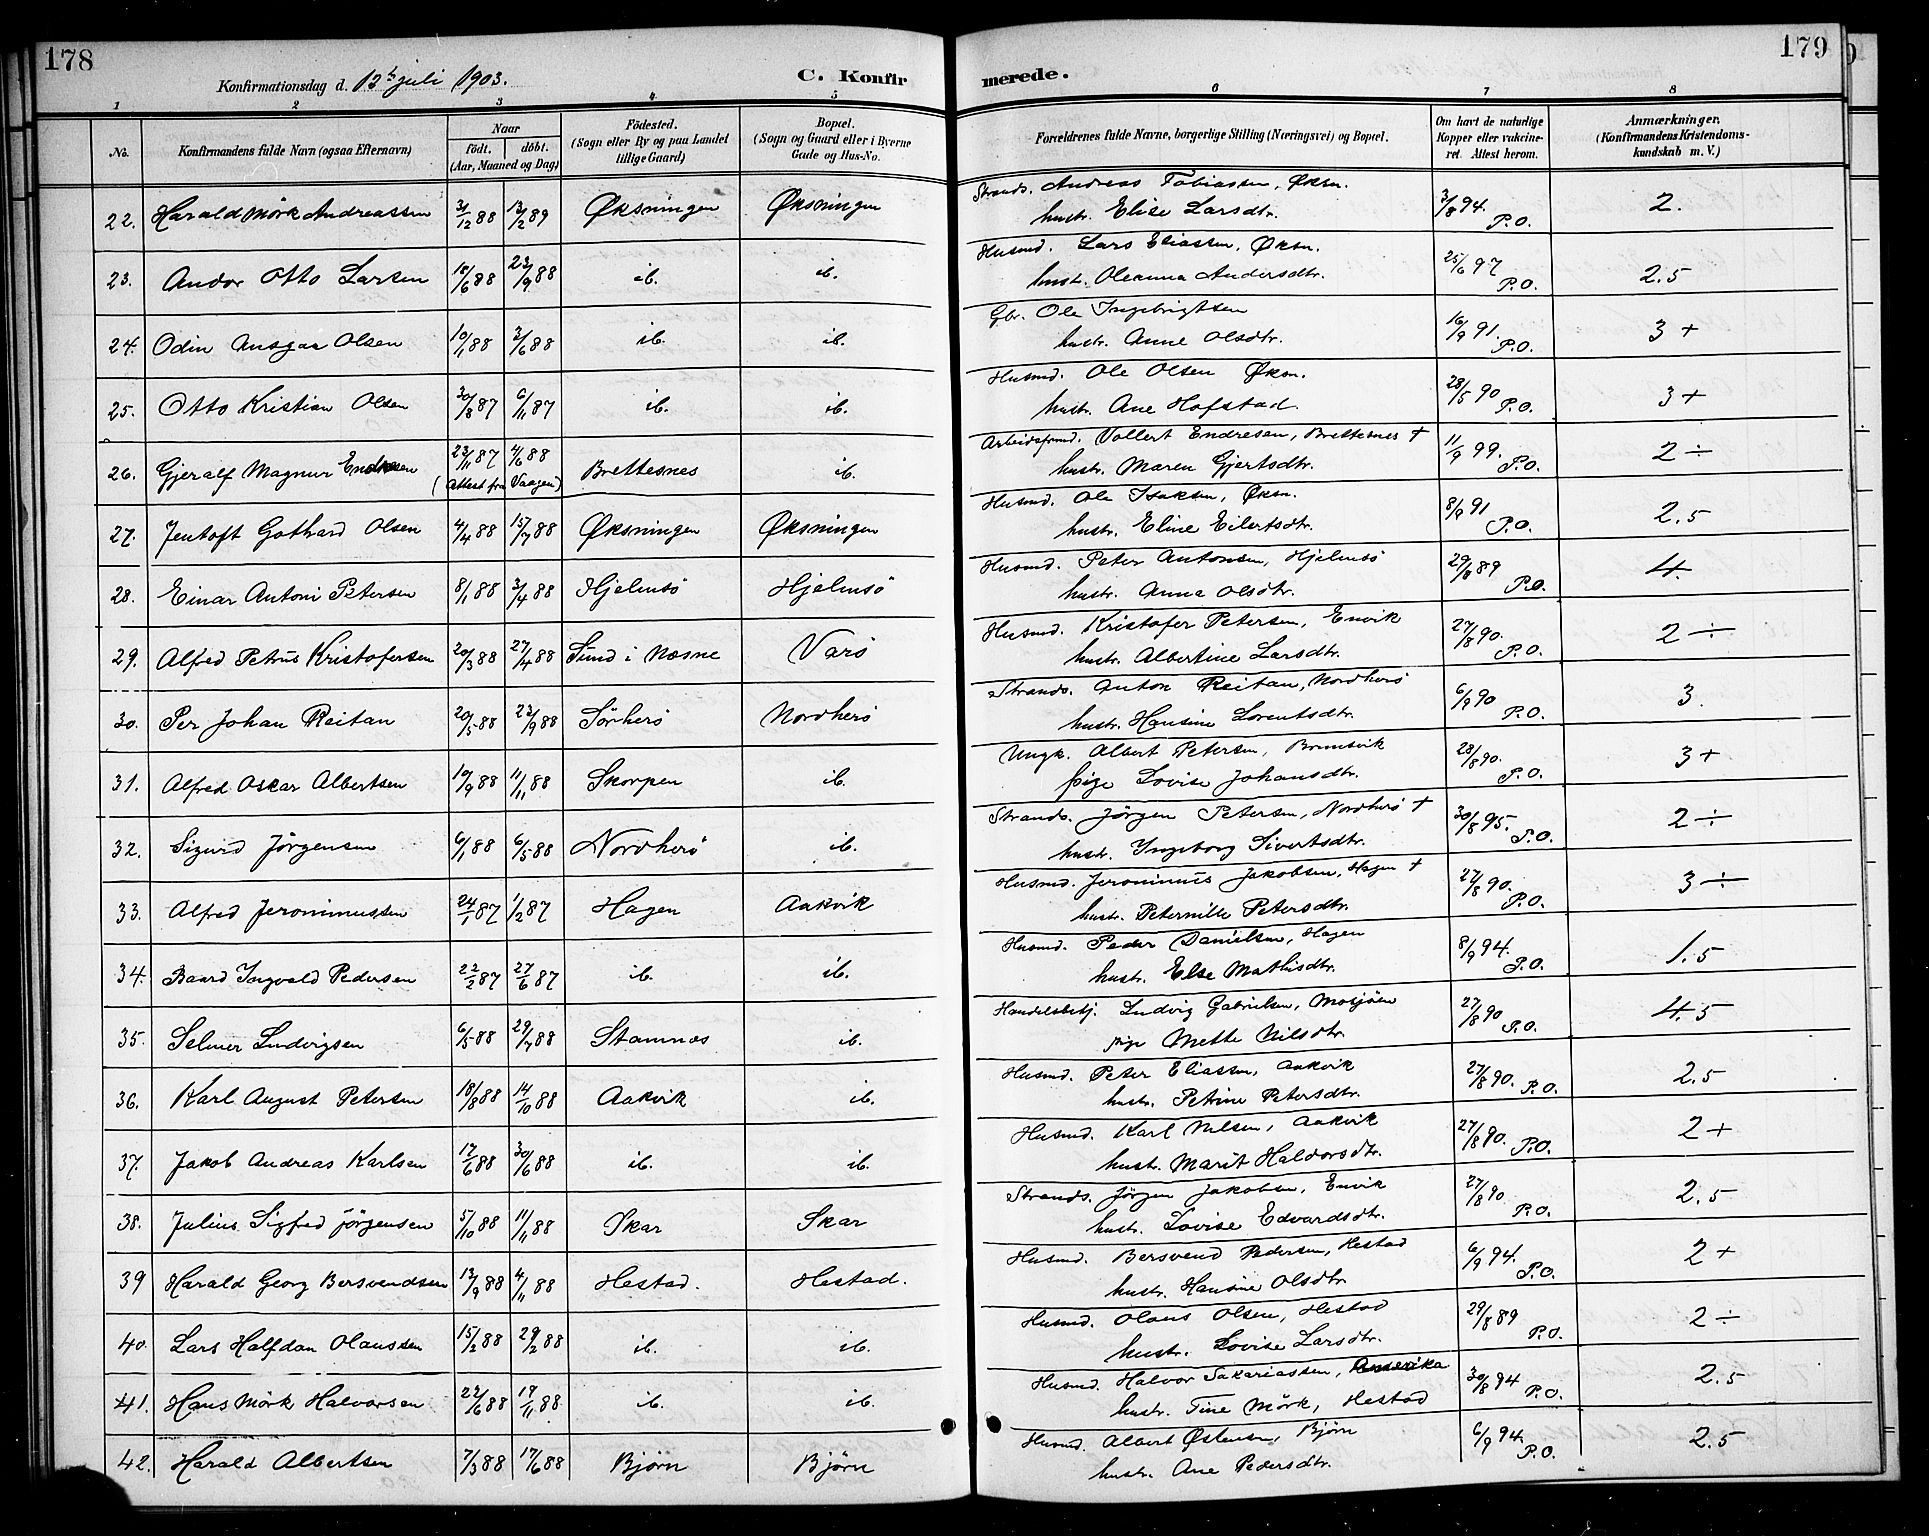 178
179
Konfirmationsdag d. 12te juli 1903.
C. Konfirmerede.
1 2 3 4 5 6 7 8
No.
Konfirmandens fulde Navn (ogsaa Efternavn)
Naar
födt. döbt.
(Aar, Maaned og Dag)
Födested.
(Sogn eller By og paa Landet
tillige Gaard)
Bopæl.
(Sogn og Gaard eller i Byerne
Gade og Hus-No.
Forældrenes fulde Navne, borgerlige Stilling (Næringsvei) og Bopæl.
Om havt de naturlige
Kopper eller vakcine-
ret Attest herom.
Anmærkninger.
(Konfirmandens Kristendoms-
kundskab m. V.)
22. Harald Mörk Andreassen 31/12 88 13/2 89 Øksningen Øksningen Strands. Andreas Tobiassen, Øksn. 3/8 94. P.O. 2.
hustr. Elise Larsdtr.
23. Andor Otto Larsen 10/6 88 23/9 88 ib. ib. Husmd. Lars Eliassen, Øksn. 25/6 97 P.O. 2.5
hustr. Oleanna Andersdtr.
24. Odin Ansgar Olsen 10/1 88 3/6 88 ib. ib. Gbr. Ole Ingebrigtsen 16/9 91. P.O. 3 +
hustr. Anne Olsdtr.
25. Otto Kristian Olsen 30/8 87 6/11 87 ib. ib. Husmd. Ole Olsen Øksn. 28/5 90 P.O. 3 +
hustr. Ane Hofstad.
26. Gjeralf Magnus Endresen 23/11 87 4/6 88 Brettesnes ib. Arbeidsfmd. Vollert Endresen, Brettesnes + 11/9 99. P.O. 2 ÷
(Attest fra Vaagen) hustr. Maren Gjertsdtr.
27. Jentoft Gothard Olsen 4/4 88 15/7 88 Øksningen Øksningen Husmd. Ole Isaksen, Øksn. 8/9 91 P.O. 2.5
hustr. Eline Eilertsdtr.
28. Einar Antoni Petersen 8/1 88 3/4 88 Hjelmsö Hjelmsö Husmd. Peter Antonsen, Hjelmsö 29/8 89 P.O. 4.
hustr. Anna Olsdtr.
29. Alfred Petrus Kristofersen 20/3 88 27/4 88 Sund i Næsne Varö Husmd. Kristofer Petersen, Envik 27/8 90. P.O. 2 ÷
hustr. Albertine Larsdtr.
30. Per Johan Reitan 20/5 88 23/9 88 Sörherö Nordherö Strands. Anton Reitan, Nordherö 6/9 90 P.O. 3.
hustr. Hansine Lorentsdtr.
31. Alfred Oskar Albertsen 10/9 88 11/11 88 Skorpen ib. Ungk. Albert Petersen, Brunsvik 28/8 90. P.O. 3 +
pige Lovise Johansdtr.
32. Sigurd Jörgensen 6/1 88 6/5 88 Nordherö ib. Strands. Jörgen Petersen, Nordherö + 30/8 95. P.O. 2 ÷
hustr. Ingeborg Sivertsdtr.
33. Alfred Jeronimussen 24/1 87 1/2 87 Hagen Aakvik Husmd. Jeronimus Jakobsen, Hagen + 27/8 90. P.O. 3 ÷
hustr. Peternille Petersdtr.
34. Baard Ingvald Pedersen 22/2 87 27/6 87 ib. ib. Husmd. Peder Danielsen, Hagen 8/9 94. P.O. 1.5
hustr. Else Mathisdtr.
35. Selmer Ludvigsen 6/5 88 29/7 88 Stamnes ib. Handelsbetj. Ludvig Gabrielsen, Mosjöen 27/8 90 P.O. 4.5
pige Mette Nilsdtr.
36. Karl August Petersen 18/8 88 14/10 88 Aakvik ib. Husmd. Peter Eliassen, Aakvik 27/8 90. P.O. 2.5
hustr. Petrine Petersdtr.
37. Jakob Andreas Karlsen 17/6 88 30/6 88 ib. ib. Husmd. Karl Nilsen, Aakvik 27/8 90. P.O. 2 +
hustr. Marit Haldorsdtr.
38. Julius Sigfred Jörgensen 5/10 88 11/11 88 Skar Skar Strands. Jörgen Jakobsen, Envik 27/8 90. P.O. 2.5
hustr. Lovise Edvardsdtr.
39 Harald Georg Bersvendsen 13/9 88 4/11 88 Hestad. Hestad. Husmd. Bersvend Pedersen, Hestad 6/9 94. P.O. 2 +
hustr. Hansine Olsdtr.
40. Lars Halfdan Olaussen 15/2 88 29/2 88 ib. ib. Husmd. Olaus Olsen, Hestad 29/8 89 P.O. 2 ÷
hustr. Lovise Larsdtr.
41. Hans Mörk Halvorsen 22/6 88 18/11 88. ib. ib. Husmd. Halvor Sakariassen, Amerika 30/8 94 P.O. 2.5
hustr. Tine Mörk, Hestad
42. Harald Albertsen 7/3 88 17/6 88 Bjørn Bjørn Husmd. Albert Østensen, Bjørn 6/9 94. P.O. 2.5
hustr. Ane Pedersdtr.